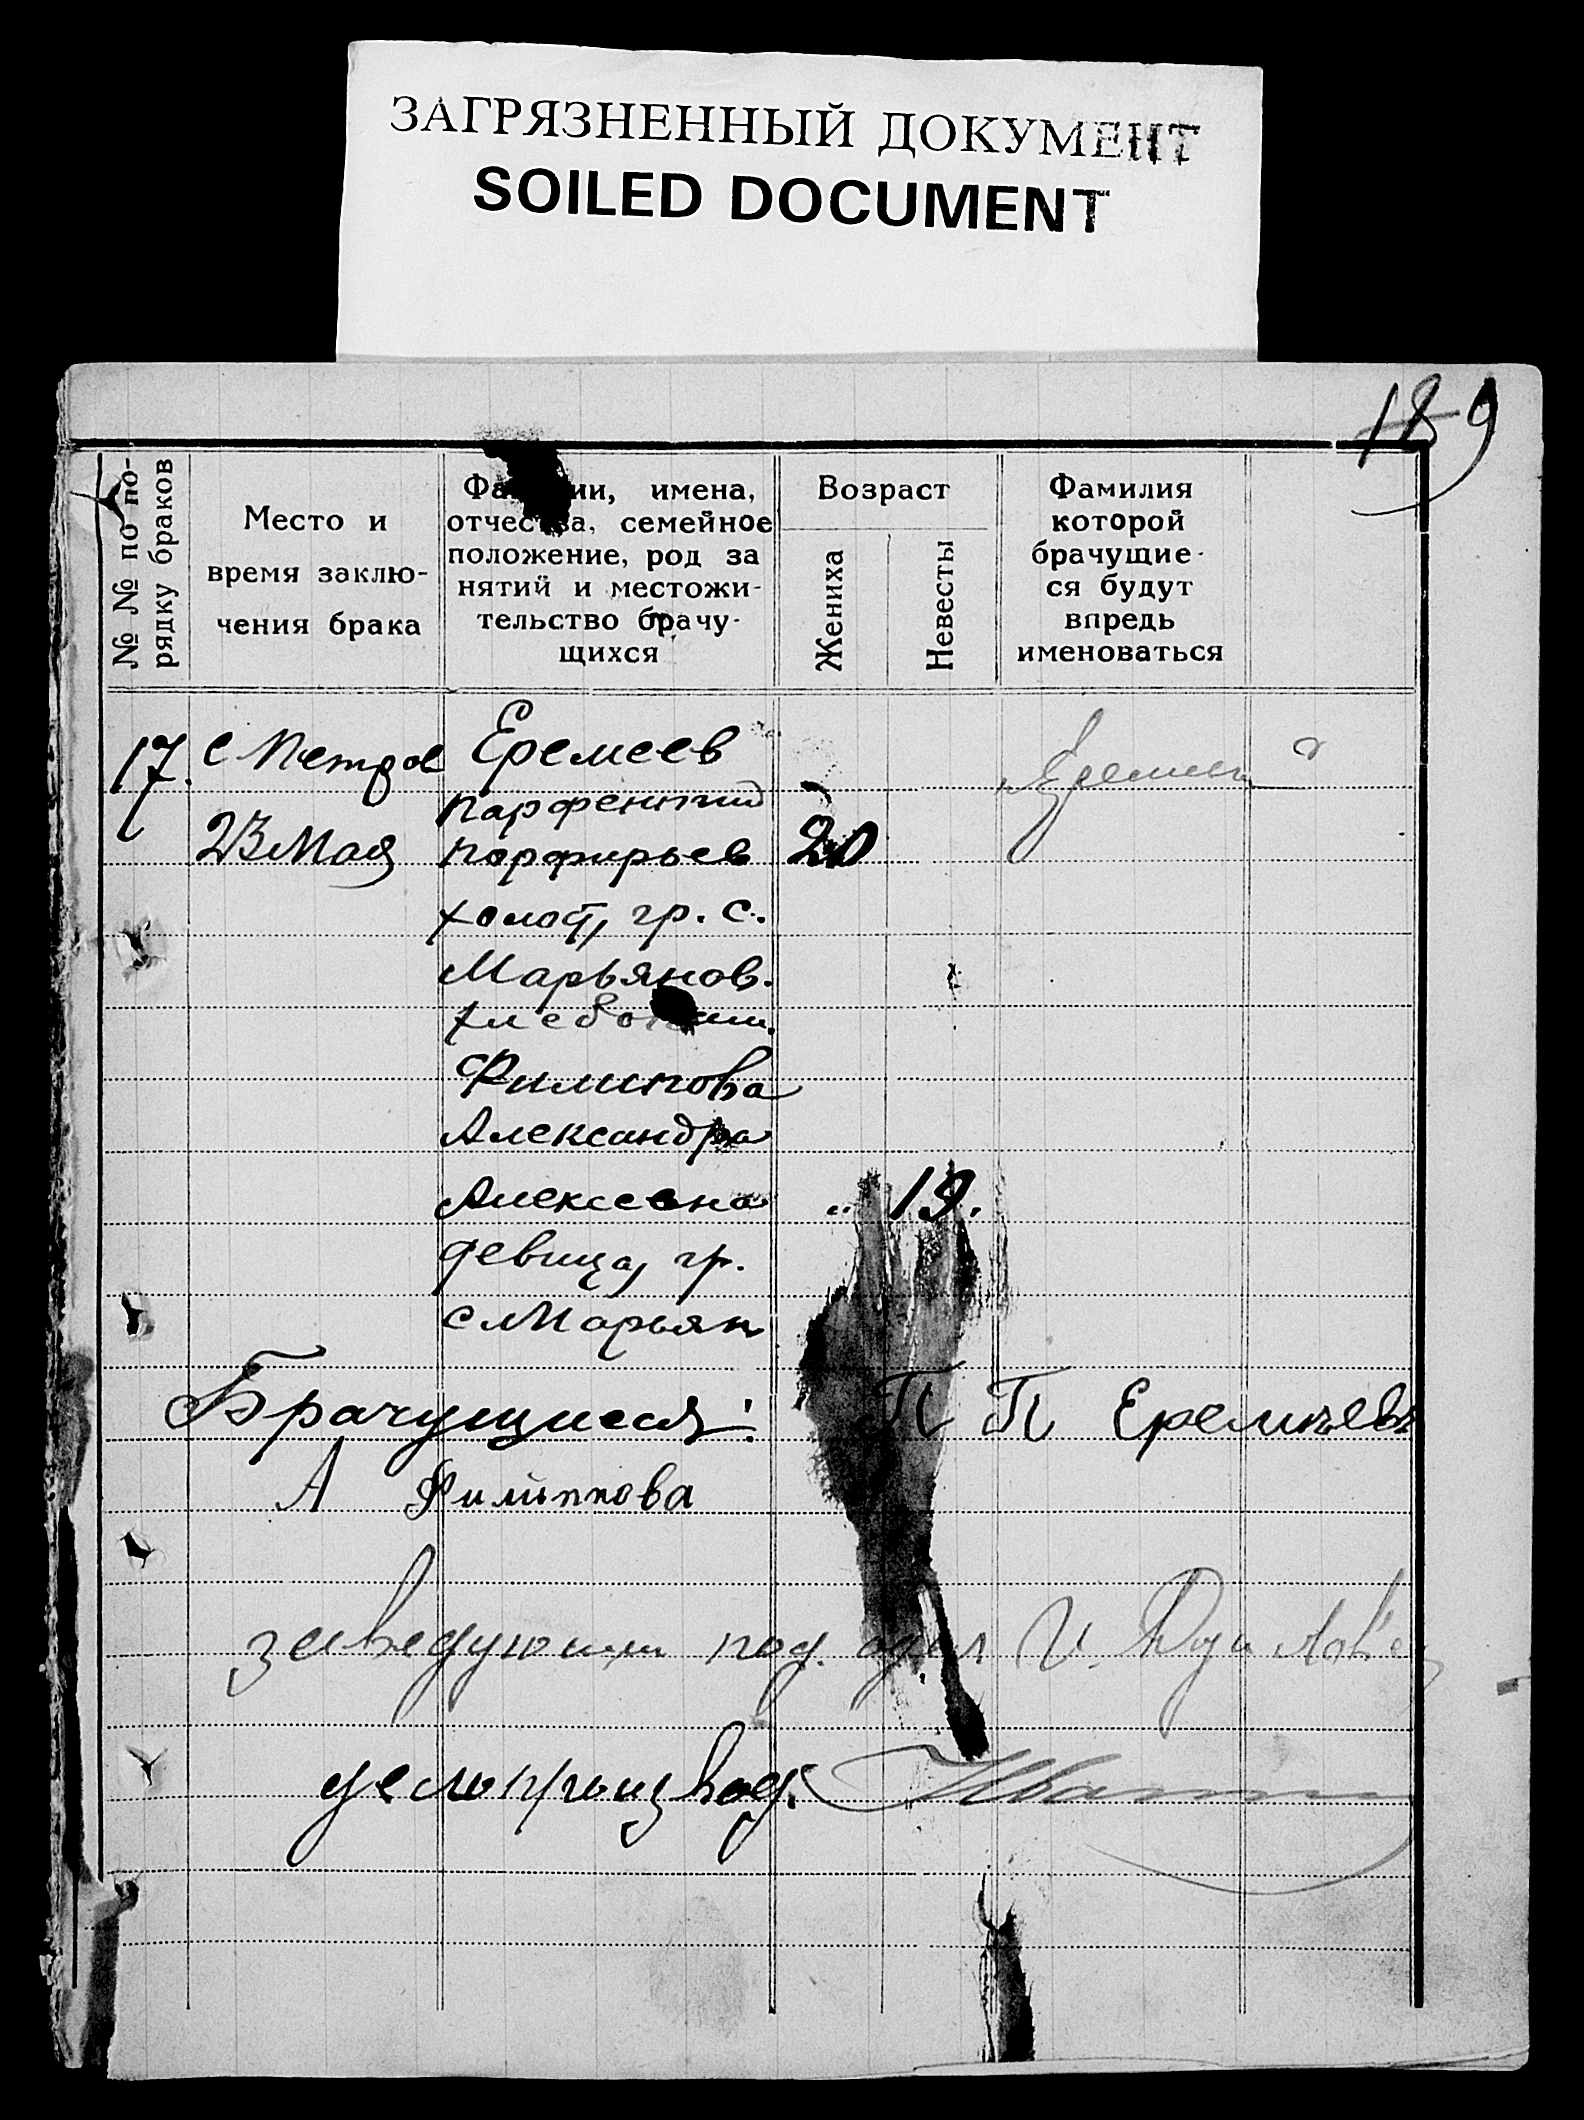 ЗАГРЯЗНЕННЫЙ ДОКУМЕНТ
SOILED DOCUMENT
189
№ № по по-
рядку браков
Место и
время заклю-
чения брака
Фа ии, имена,
отчества, семейное
положение, род за
нятий и местожи-
тельство брачу-
щихся
Возраст
Жениха
Невесты
Фамилия
которой
брачущие-
ся будут
впредь
именоваться
17. с Петров Еремеев
Парфентий
23 Мая Порфирьев 20
холост, гр. с.
Марьянов.
Филипова
Александра
Алексевна „ 19.
девица, гр.
с Марьян
Брачущиеся: П П Еремъевъ
А Филиппова
заведующий под. отдел И.
делопроизвод.